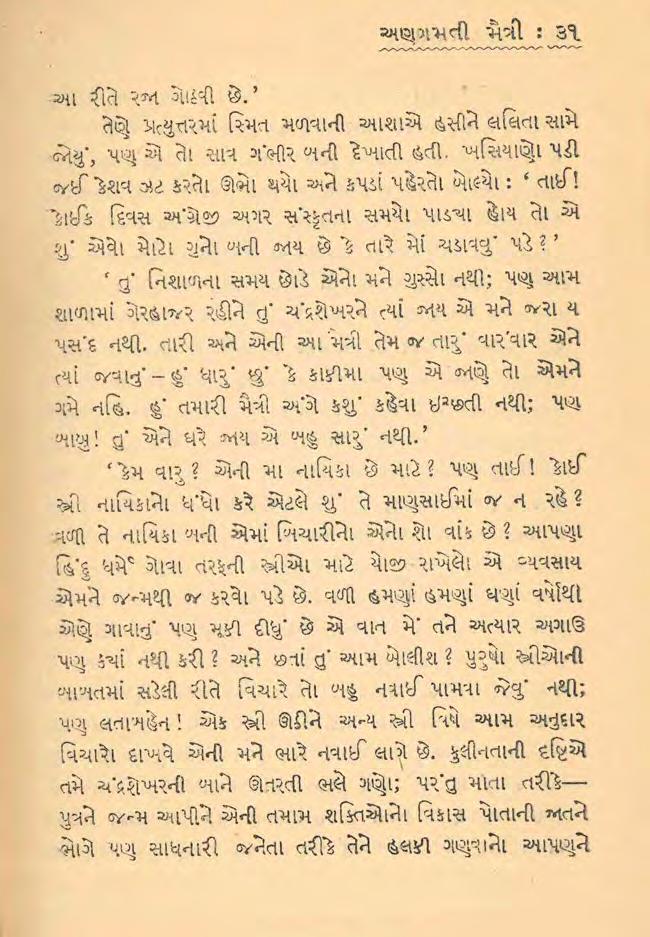 અણગમતી મૈત્રી : ૩૧
આ રીતે રજા ગોઠવી છે.’
તેણે પ્રત્યુત્તરમાં સ્મિત મળવાની આશાએ હસીને લલિતા સામે
જોયું, પણ એ તો સાવ ગંભીર બની દેખાતી હતી. ખસિયાણો પડી
જઈ કેશવ ઝટ કરતો ઊભો થયો અને કપડાં પહેરતો બોલ્યો : ‘ તાઈ!
કોઈક દિવસ અંગ્રેજી અગર સંસ્કૃતના સમયો પાડ્યા હોય તો એ
શું એવો મોટો ગુનો બની જાય છે કે તારે મોં ચડાવવું પડે ?’
‘ તું નિશાળના સમય છોડે એનો મને ગુસ્સો નથી; પણ આમ
શાળામાં ગેરહાજર રહીને તું ચંદ્રશેખરને ત્યાં જાય એ મને જરા ય
પસંદ નથી. તારી અને એની આ મૈત્રી તેમ જ તારું વારંવાર એને
ત્યાં જવાનું – હું ધારું છું કે કાકીમા પણ એ જાણે તો એમને
ગમે નહિ. હું તમારી મૈત્રી અંગે કશું કહેવા ઇચ્છતી નથી; પણ
બાબુ! તું એને ઘરે જાય એ બહુ સારું નથી.’
‘ કેમ વારુ ? એની મા નાયિકા છે માટે ? પણ તાઈ! કોઈ
સ્ત્રી નાયિકાનો ધંધો કરે એટલે શું તે માણસાઈમાં જ ન રહે ?
વળી તે નાયિકા બની એમાં બિચારીનો એનો શો વાંક છે ? આપણા
હિંદુ ધર્મે ગોવા તરફની સ્ત્રીઓ માટે યોજી રાખેલો એ વ્યવસાય
એમને જન્મથી જ કરવો પડે છે. વળી હમણાં હમણાં ઘણાં વર્ષોથી
એણે ગાવાનું પણ મૂકી દીધું છે એ વાત મેં તને અત્યાર અગાઉ
પણ ક્યાં નથી કરી ? અને છતાં તું આમ બોલીશ ? પુરુષો સ્ત્રીઓની
બાબતમાં સડેલી રીતે વિચારે તો બહુ નવાઈ પામવા જેવું નથી;
પણ લતાબહેન ! એક સ્ત્રી ઊઠીને અન્ય સ્ત્રી વિષે આમ અનુદાર
વિચારો દાખવે એની મને ભારે નવાઈ લાગે છે. કુલીનતાની દૃષ્ટિએ
તમે ચંદ્રશેખરની બાને ઊતરતી ભલે ગણો; પરંતુ માતા તરીકે—
પુત્રને જન્મ આપીને એની તમામ શક્તિઓનો વિકાસ પોતાની જાતને
ભોગે પણ સાધનારી જનેતા તરીકે તેને હલકી ગણવાનો આપણને